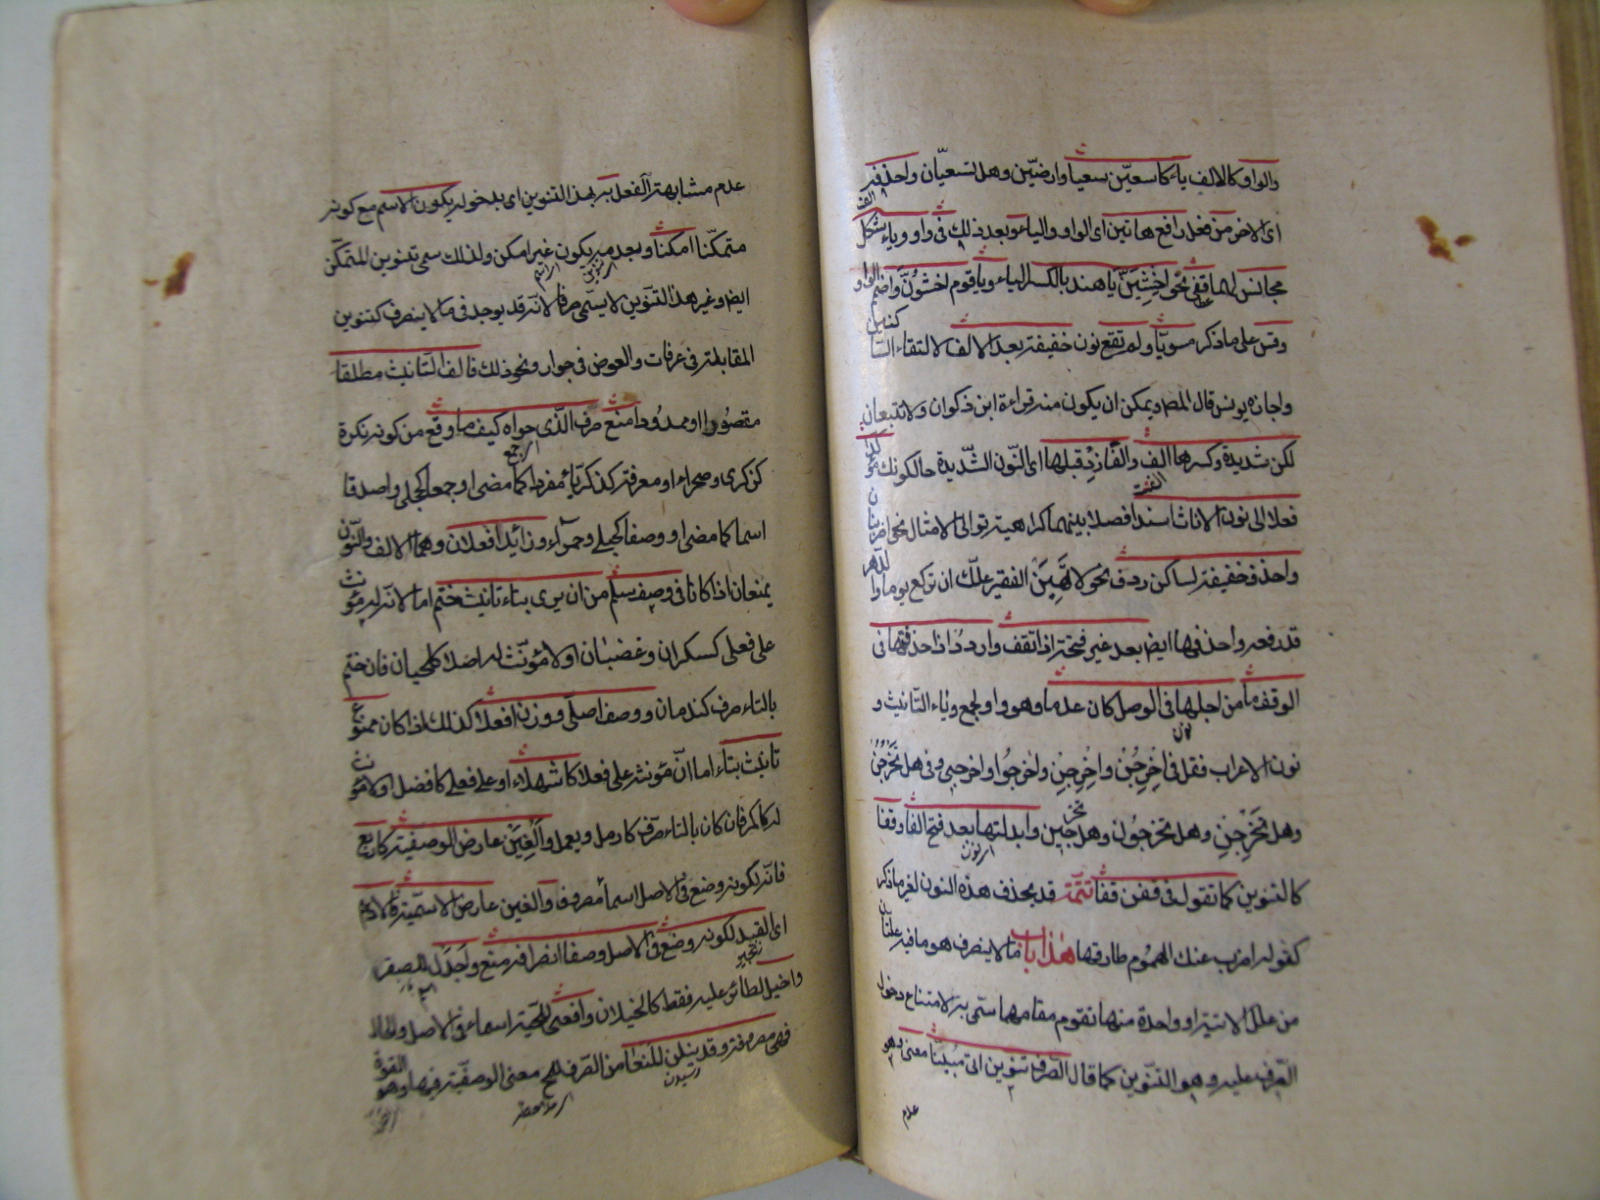 والواو كالالف ياء كاسعين سعيا وارضين وهل تسعيان واحذفه
اى الاخر من فعل رافع هاتين اى الواو والياء وبعد ذلك فى واو وياء شكل
مجانس لهما قفى نحو اخشين يا هند بالكسر للياء ويا قوم اخشون واضمم الواو
وقس على ما ذكر مسويا ولم تقع نون خفيفة بعد الالف لالتقاء الساكنين
واجازه يونس قال المصـ ويمكن ان يكون منه قراءة ابن ذكوان ولا تتبعان
لكن شديدة وكسرها الف والفا زد قبلها اى النون الشديدة حالكونك مؤكدا
فعلا الى نون الاناث اسندا فصلا بينهما كراهية توالى الامثال نحو اضربنان
واحذف خفيفة لساكن ردف نحو لا تهين الفقير علك ان تركع يوما والدهر
قد رفعه واحذفها ايضا بعد غير فتحة اذا تقف واردد اذا حذفتها فى
الوقف ما من اجلها فى الوصل كان عدما وهو واو الجمع وياء التانيث و
نون الاعراب فقل فى اخرجن واخرجن واخرجوا واخرجى وفى هل تخرجن
وهل تخرجن وهل تخرجون وهل تخرجين وابدلنها بعد فتح الفا وقفا
كالتنوين كما تقول فى قفن قفا تتمة قد يحذف هذه النون لغير ما ذكر
كقوله اضرب عنك الهموم طارقها هذا باب ما لا ينصرف هو ما فيه علتان
من علل الاتية او واحدة منها تقوم مقامهما سمى به لامتناع دخول
الصرف عليه وهو التنوين كما قال الصرف تنوين اتى مبينا معنى وهو
عدم
عدم مشابهة الفعل به بهذا التنوين اى بدخوله يكون الاسم مع كونه
متمكنا امكنا وبعدمه يكون غير امكن ولذلك سمى تنوين التمكن
ايضا وغير هذا التنوين لا يسمى صرفا لانه قد يوجد فى ما لا ينصرف كتنوين
المقابلة فى عرفات والعوض فى جوار ونحو ذلك فالف التانيث مطلقا
مقصورا او ممدودا منع صرف الذى حواه كيف ما وقع من كونه نكرة
كذكرى وصحراء او معرفة كذكرياء مفردا كما مضى او جمعا كحجلى واصدقا
اسما كما مضى او وصفا كحبلى وحمراء وزائدا فعلان وهما الالف والنون
يمنعان اذا كانا فى وصف سلم من ان يرى بتاء تانيث ختم اما لانه له مؤنث
على فعلى كسكران وغضبان او لا مؤنث له اصلا كلحيان فان ختم
بالتاء صرف كندمان ووصف اصلى ووزن افعلا كذلك اذا كان ممنوع
تانيث بتاء اما ان مؤنثه على فعلا كاشهلاء او على فعلى كافضل او لا مؤنث
له كاكمر فان كان بالتاء صرف كارمل ويعمل والغين عارض الوصفية كاربع
فانه لكونه وضع فى الاصل اسما مصروف والغين عارض الاسمية فالادهم
اى القيد لكونه وضع فى الاصل وصفا انصرافه منع واجدل للصقر
واخيل لطائر عليه نقط كالخيلان وافعى للحية اسماء فى الاصل والحال
فهى مصروفة وقد ينلن المنعا من الصرف للمح معنى الوصفية فيها وهو القوة